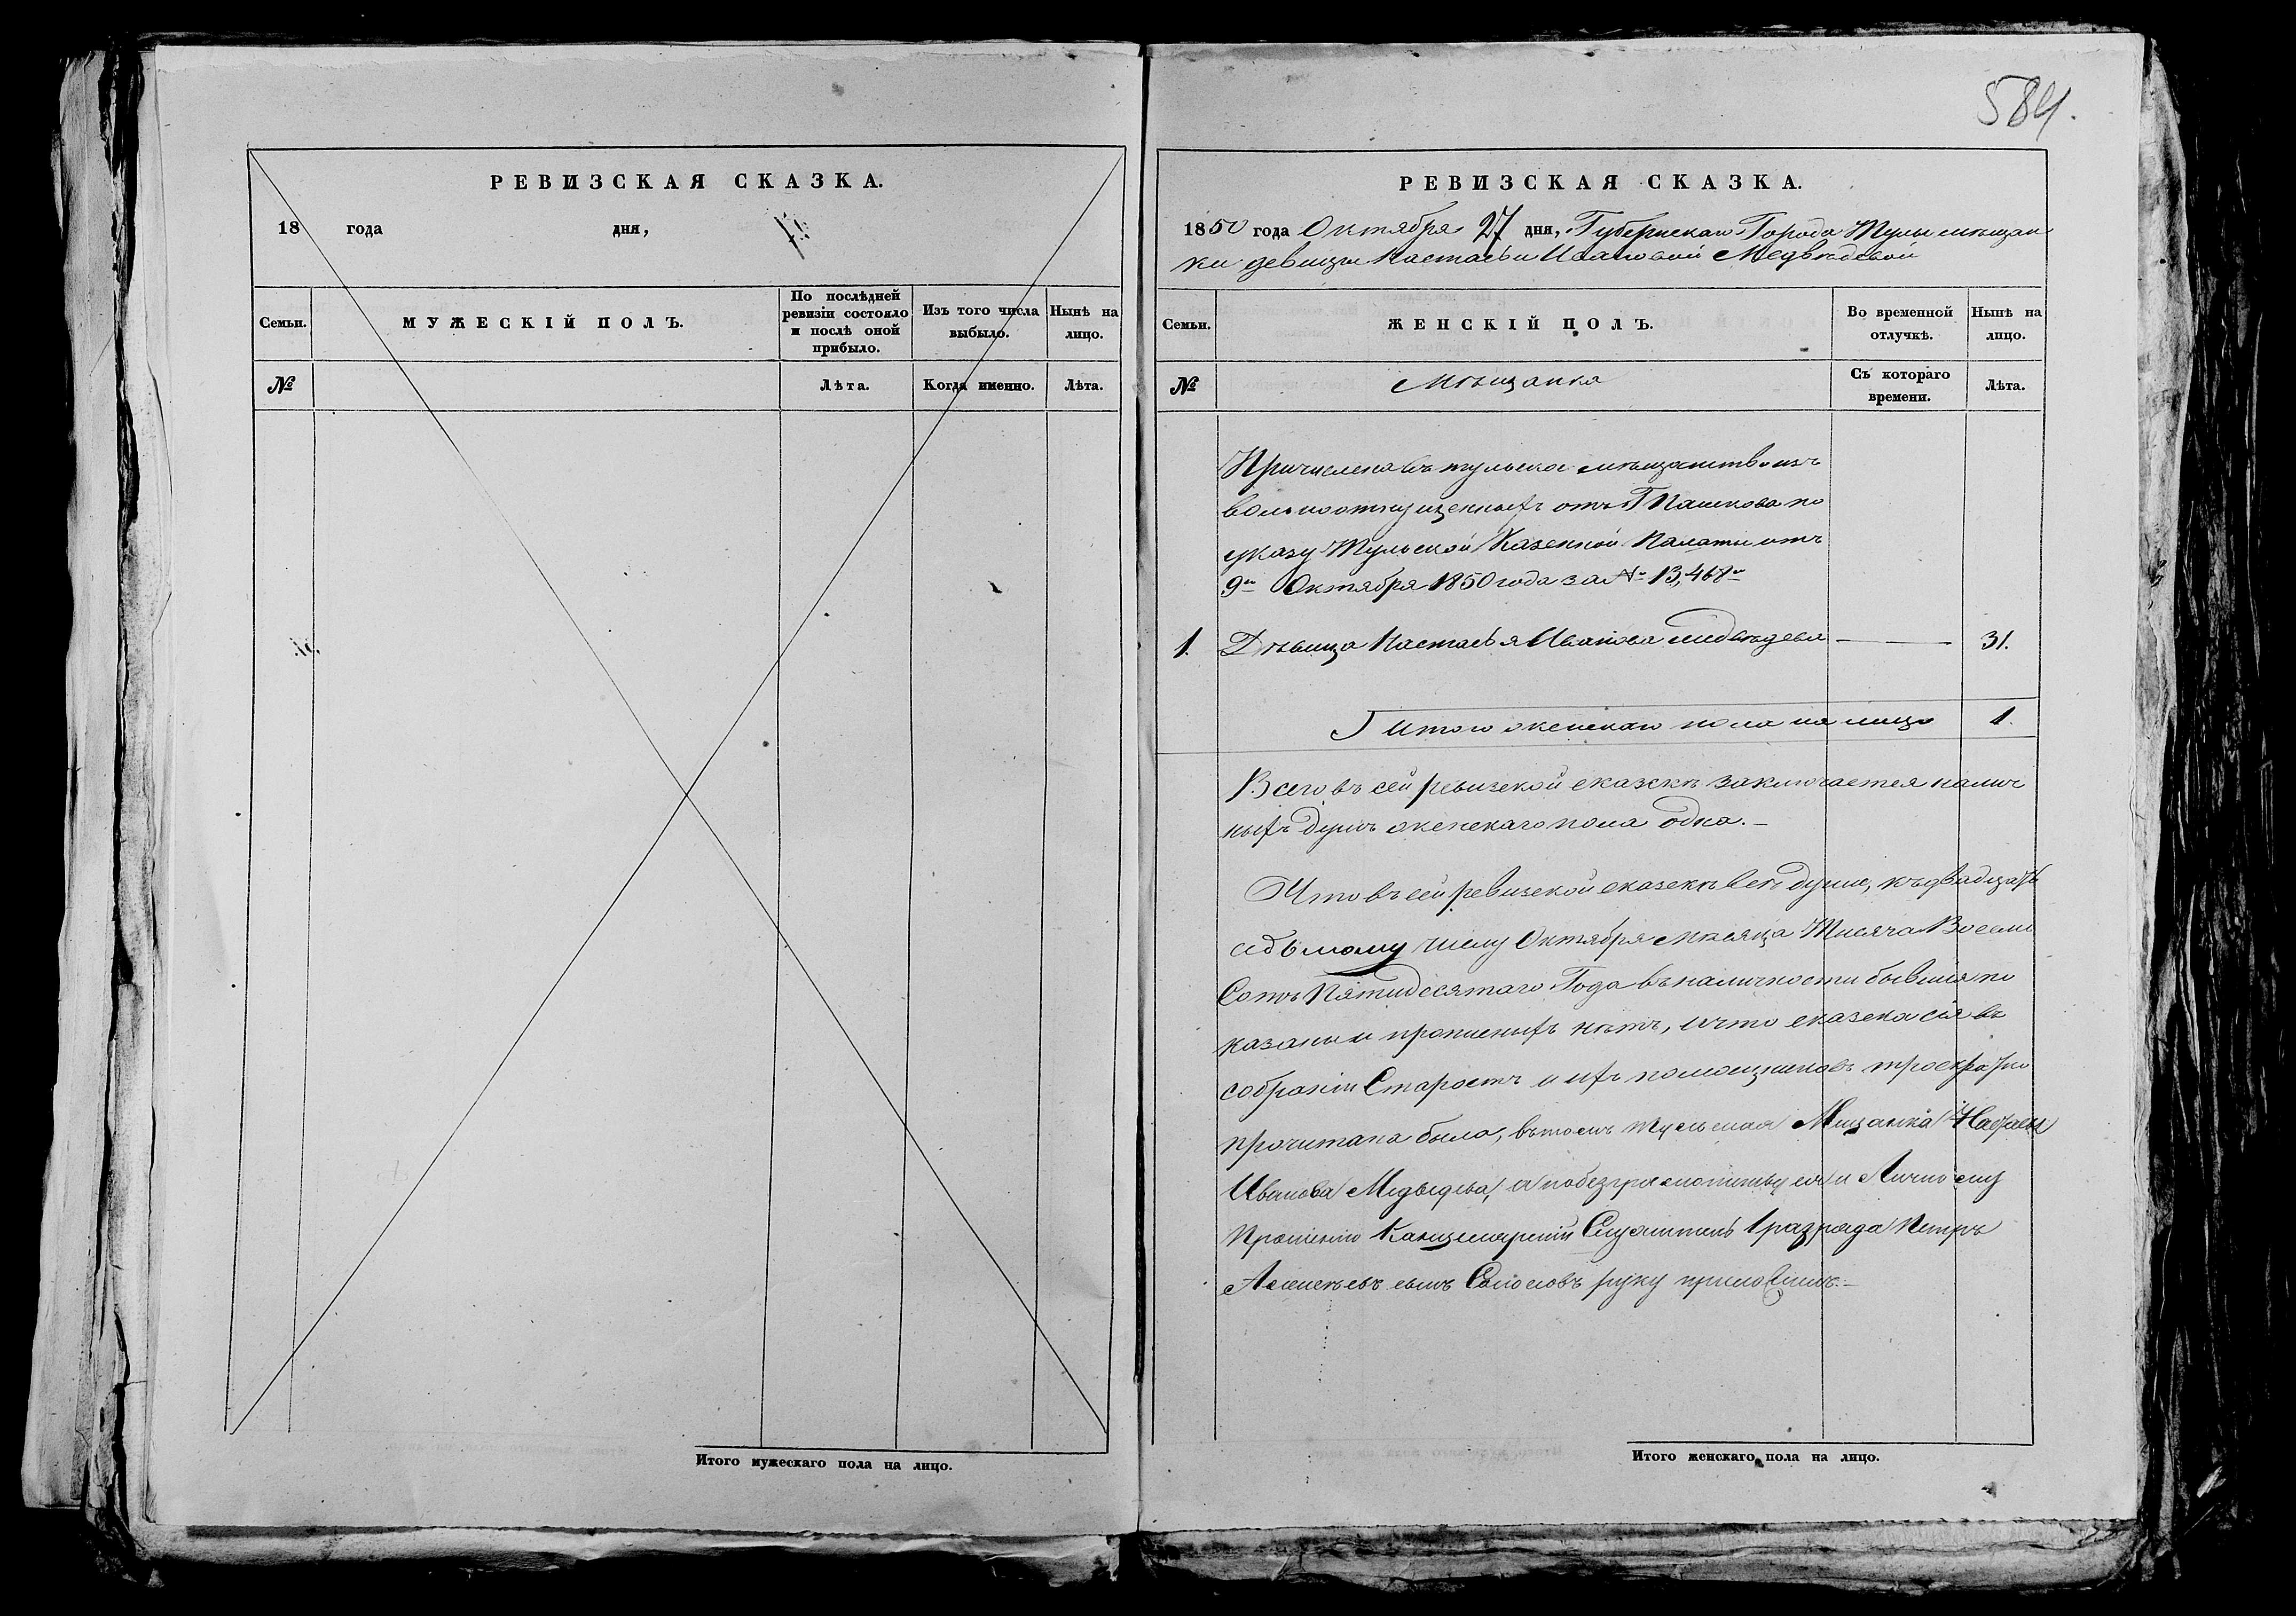 584.
РЕВИЗСКАЯ СКАЗКА.
18 года дня,
Семьи.
МУЖЕСКІЙ ПОЛЪ.
По послѣдней
ревизіи состояло
и послѣ оной
прибыло.
Изъ того числа
выбыло.
Нынѣ на
лицо.
№
Лѣта.
Когда именно.
Лѣта.
Итого мужескаго пола на лицо.
РЕВИЗСКАЯ СКАЗКА.
1850 года Октября 27 дня, Губернскаго Города Тулы мѣщан
ки девицы Настасьи Ивановой Медвѣдевой
Семьи.
ЖЕНСКІЙ ПОЛЪ.
Во временной
отлучкѣ.
Нынѣ на
лицо.
№
Мѣщанка
Съ котораго
времени.
Лѣта.
Причислена въ тульское мѣщанство изъ
вольноотпущенныхъ отъ Г Пашкова по
указу Тульской Казенной Палаты отъ
9го Октября 1850 года за № 13,468м
1. Дѣвица Настасья Иванова медвѣдева — 31.
Итого женскаго пола на лицо 1.
Всего въ сей ревизской сказкѣ заключается налич
ныхъ душъ женскаго пола одна.—
Что въ сей ревизской сказкѣ всѣ души, къ двадцать
седьмому числу Октября мѣсяца Тысяча Восемь
Сотъ Пятидесятаго Года въ наличности бывшія по
казаны и прописныхъ нѣтъ, и что сказка сія въ
собраніи Старостъ и ихъ помощниковъ троекратно
прочитана была, въ томъ тульская Мещанка Настасья
Иванова Медведева, а по безграмотству ея и Личному
Прошенію Канцелярскій Служитель 1 разряда Петръ
Алексѣевъ сынъ руку приложилъ.—
Итого женскаго пола на лицо.